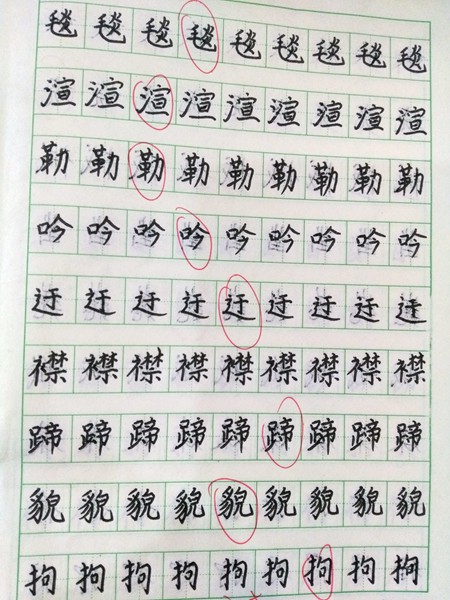 毯毯毯毯毯毯毯毯毯
渲渲渲渲渲渲渲渲渲
勒勒勒勒勒勒勒勒勒
吟吟吟吟吟吟吟吟吟
迂迂迂迂迂迂迂迂迂
襟襟襟襟襟襟襟襟襟
蹄蹄蹄蹄蹄蹄蹄蹄蹄
貌貌貌貌貌貌貌貌貌
拘拘拘拘拘拘拘拘拘